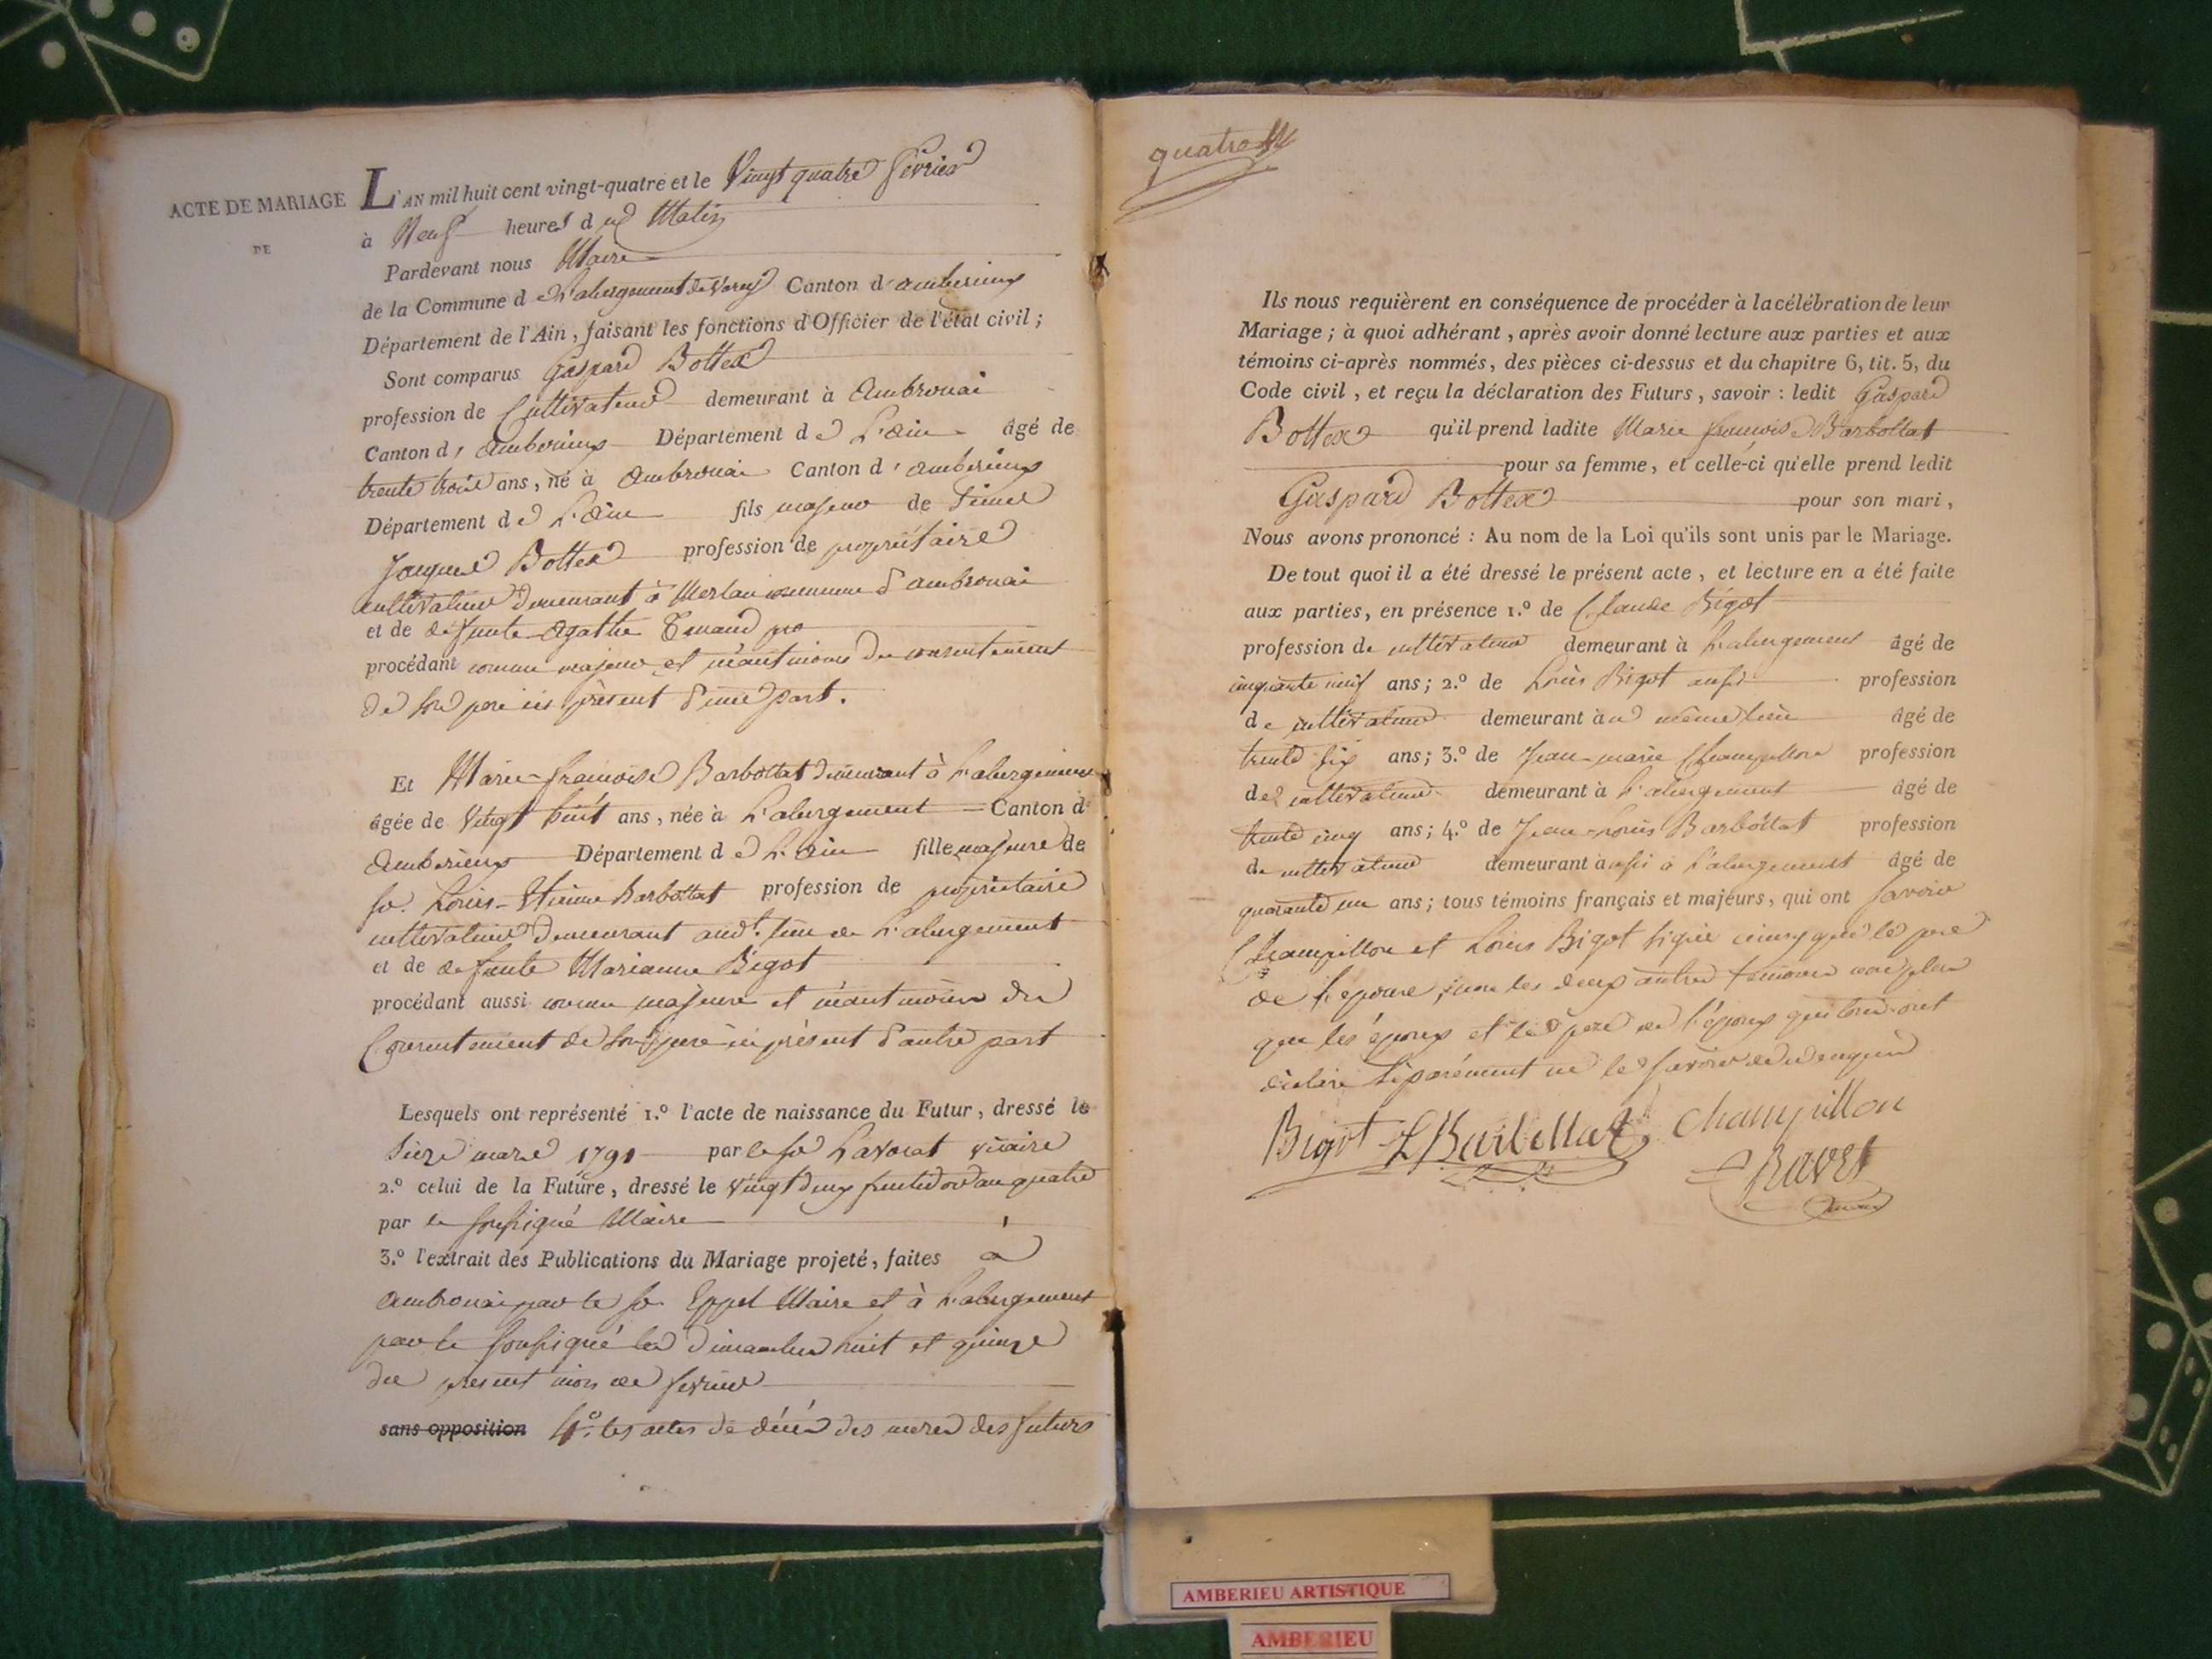 ACTE DE MARIAGE
DE
L'AN mil huit cent vingt-quatre et le Vingt quatre fevrier
à Neuf heures du Matin
Pardevant nous Maire
de la Commune de L'abergement de Varey Canton d'amberieux
Département de l'Ain, faisant les fonctions d'Officier de l'état civil;
Sont comparus Gaspard Bottex
profession de Cultivateur demeurant à Ambronai
Canton d'Amberieux Département de L'ain âgé de
trente trois ans, né à Ambronai Canton d'amberieux
Département de L'ain fils majeur de
Jacques Bottex profession de propriétaire
cultivateur demeurant à Merlan commune d'ambronai
et de défunte Agathe
procédant comme majeur et néantmoins du consentement
de son pere ici présent d'une part.
Et Marie-francoise Barbollat demeurant à L'abergement
âgée de Vingt huit ans, née à L'abergement Canton d'
Amberieux Département de L'ain fille majeure de
sr. Louis-Etienne Barbollat profession de propriétaire
cultivateur demeurant audt. lieu de L'abergement
et de defunte Marianne Bigot
procédant aussi comme majeure et néantmoins du
Consentement de son pere ici présent d'autre part
Lesquels ont représenté 1.º l'acte de naissance du Futur, dressé le
seize mars 1791 par le sr Lavocat vicaire
2.º celui de la Future, dressé le vingt deux fructidor an quatre
par le soussigné Maire
3.º l'extrait des Publications du Mariage projeté, faites à
Ambronai par le sr. Eppel Maire et à L'abergement
par le soussigné les dimanches huit et quinze
du present mois de fevrier
sans opposition 4º. les actes de décès des meres des futurs
quatre
Ils nous requièrent en conséquence de procéder à la célébration de leur
Mariage; à quoi adhérant, après avoir donné lecture aux parties et aux
témoins ci-après nommés, des pièces ci-dessus et du chapitre 6, tit. 5, du
Code civil, et reçu la déclaration des Futurs, savoir: ledit Gaspard
Bottex qu'il prend ladite Marie francoise Barbollat
pour sa femme, et celle-ci qu'elle prend ledit
Gaspard Bottex pour son mari,
Nous avons prononcé: Au nom de la Loi qu'ils sont unis par le Mariage.
De tout quoi il a été dressé le présent acte, et lecture en a été faite
aux parties, en présence 1.º de Claude Bigot
profession de cultivateur demeurant à L'abergement âgé de
cinquante neuf ans; 2.º de Louis Bigot aussi profession
de cultivateur demeurant au même lieu âgé de
trente six ans; 3.º de Jean-marie Champillon profession
de cultivateur demeurant à L'abergement âgé de
trente cinq ans; 4.º de Jean-Louis Barbollat profession
de cultivateur demeurant aussi à L'abergement âgé de
quarante un ans; tous témoins français et majeurs, qui ont savoir
Champillon et Louis Bigot signé ainsy que le pere
de l'epouse, non les deux autres temoins non plus
que les époux et le pere de l'époux qui tous ont
déclaré séparément ne le savoir de ce enquis
Bigot L Barbollat Champillon
Ravet
AMBERIEU ARTISTIQUE
AMBERIEU